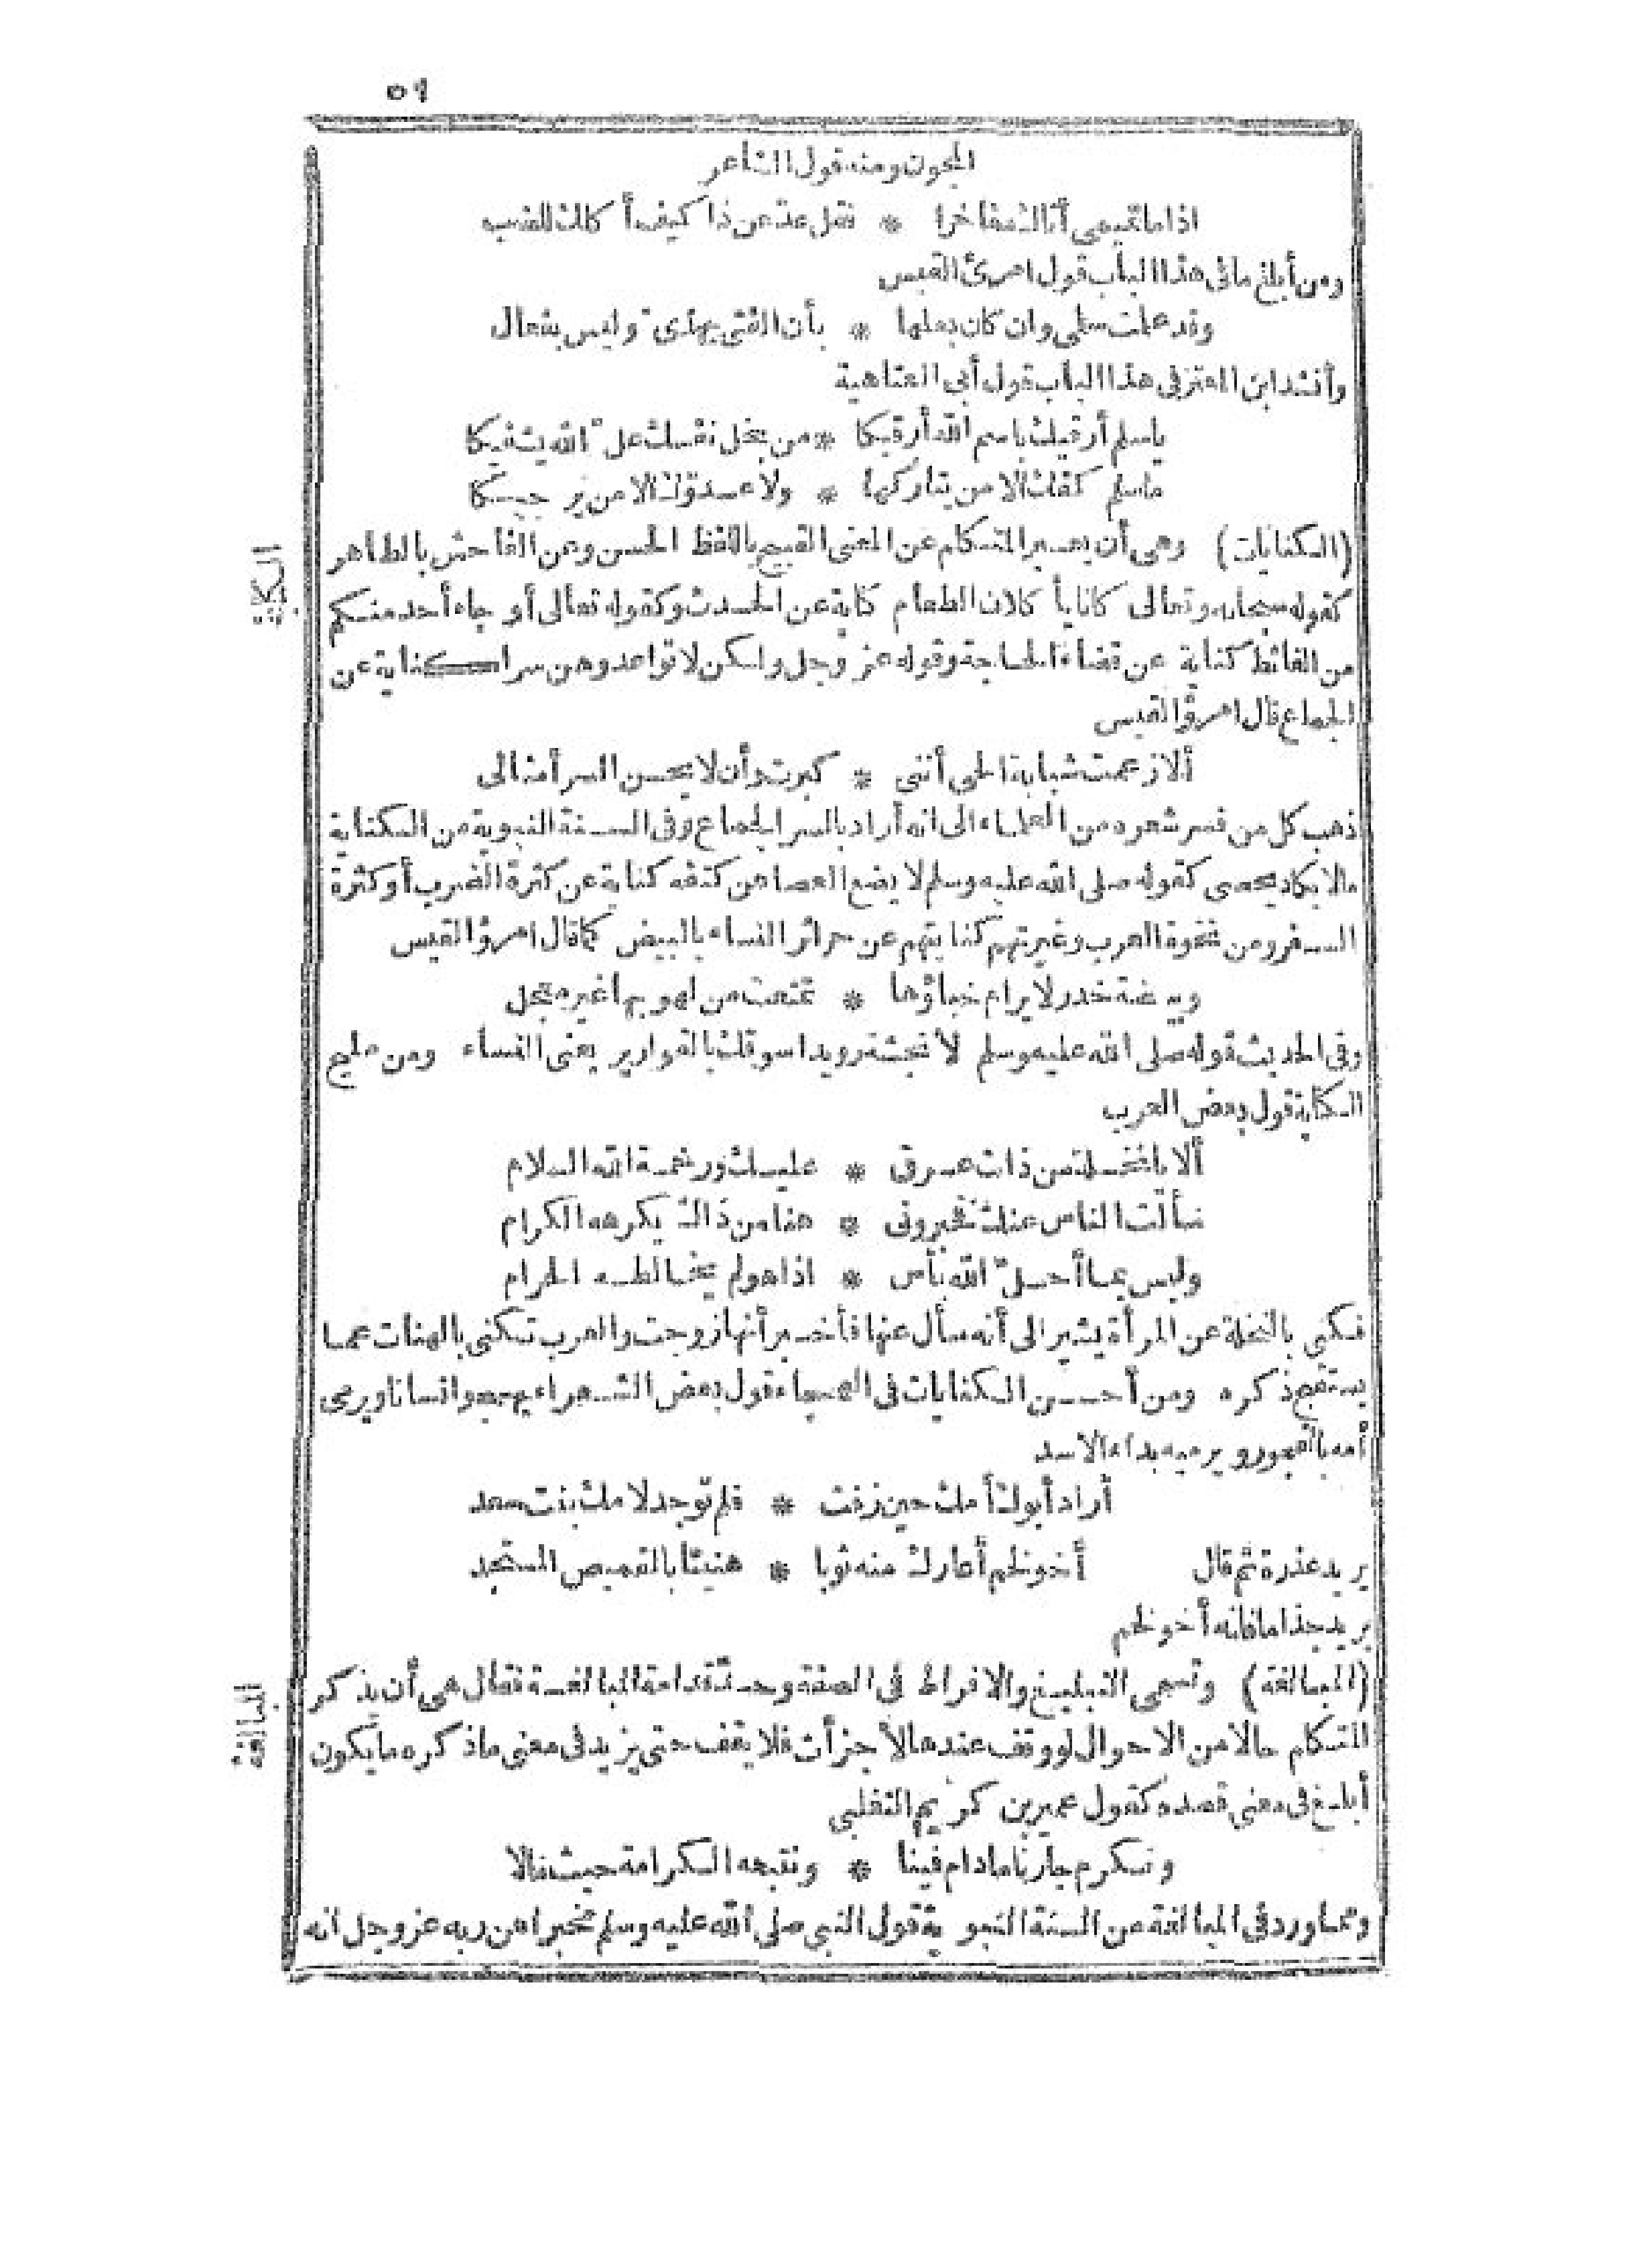 ٥٩
المجون ومنه قول الشاعر
اذا ما تميمى أتاك مفاخرا * فقل عدّ عن ذا كيف أكلك للضب
ومن أبلغ ما فى هذا الباب قول امرئ القيس
وقد علمت سلمى وان كان بعلها * بأن الفتى يهذى وليس بفعال
وأنشد ابن المعتز فى هذا الباب قول أبى العتاهية
ياسلم أرقيك باسم الله أرقيكا * من بخل نفسك علّ الله يشفيكا
ماسلم كفك الا من يتاركها * ولا عدوّك الا من يرجيكا
(الكنايات) وهى أن يعبر المتكلم عن المعنى القبيح باللفظ الحسن وعن الفاحش بالطاهر
الكناية
كقوله سبحانه وتعالى كانا يأكلان الطعام كناية عن الحدث وكقوله تعالى أو جاء أحد منكم
من الغائط كناية عن قضاء الحاجة وقوله عز وجل ولكن لا تواعدوهن سرا كناية عن
الجماع قال امرؤ القيس
ألا زعمت شبابة الحى أننى * كبرت وأن لا يحسن السر أمثالى
ذهب كل من فسر شعره من العلماء الى انه أراد بالسر الجماع وفى السنة النبوية من الكناية
مالا يكاد يحصى كقوله صلى الله عليه وسلم لا يضع العصا عن كتفه كناية عن كثرة الضرب أو كثرة
السفر ومن نخوة العرب وغيرتهم كنايتهم عن حرائر النساء بالبيض كما قال امرؤ القيس
وبيضة خدر لا يرام خباؤها * تمتعت من لهو بها غير معجل
وفى الحديث قوله صلى الله عليه وسلم لأنجشة رويدا سوقك بالقوارير يعنى النساء ومن مليح
الكناية قول بعض العرب
ألا يا نخلة من ذات عرق * عليك ورحمة الله السلام
سألت الناس عنك فخبرونى * هنا من ذاك يكرهه الكرام
وليس بما أحلّ الله بأس * اذا هو لم يخالطه الحرام
فكنى بالنخلة عن المرأة يشير الى أنه سأل عنها فأخبر أنها زوجت والعرب تكنى بالهنات عما
يستقبح ذكره ومن أحسن الكنايات فى الهجاء قول بعض الشعراء يهجو انسانا ويرمى
أمه بالفجور ويرميه بداء الأسد
أراد أبوك أمك حين زفت * فلم توجد لامك بنت سعد
يريد عذرة ثم قال أخو لخم أعارك منه ثوبا * هنيئا بالقميص المستجد
يريد جذاما فانه أخو لخم
(المبالغة) وتسمى التبليغ والافراط فى الصفة وحدّ قدامة المبالغة فقال هى أن يذكر
المبالغة
المتكلم حالا من الاحوال لو وقف عندها لأجزأت فلا يقف حتى يزيد فى معنى ما ذكره ما يكون
أبلغ فى معنى قصده كقول عمير بن كريم التغلبى
ونكرم جارنا مادام فينا * ونتبعه الكرامة حيث مالا
ومما ورد فى المبالغة من السنة النبوية قول النبى صلى الله عليه وسلم مخبرا عن ربه عز وجل انه